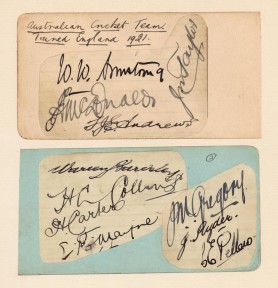 Australian Cricket Team.
Toured England 1921.
W. W. Armstrong
Jn Taylor
McDonald
T. J. E. Andrews
Warren Bardsley
H L Collins
H Carter
E R. Mayne
J M Gregory
J. Ryder.
C E Pellew